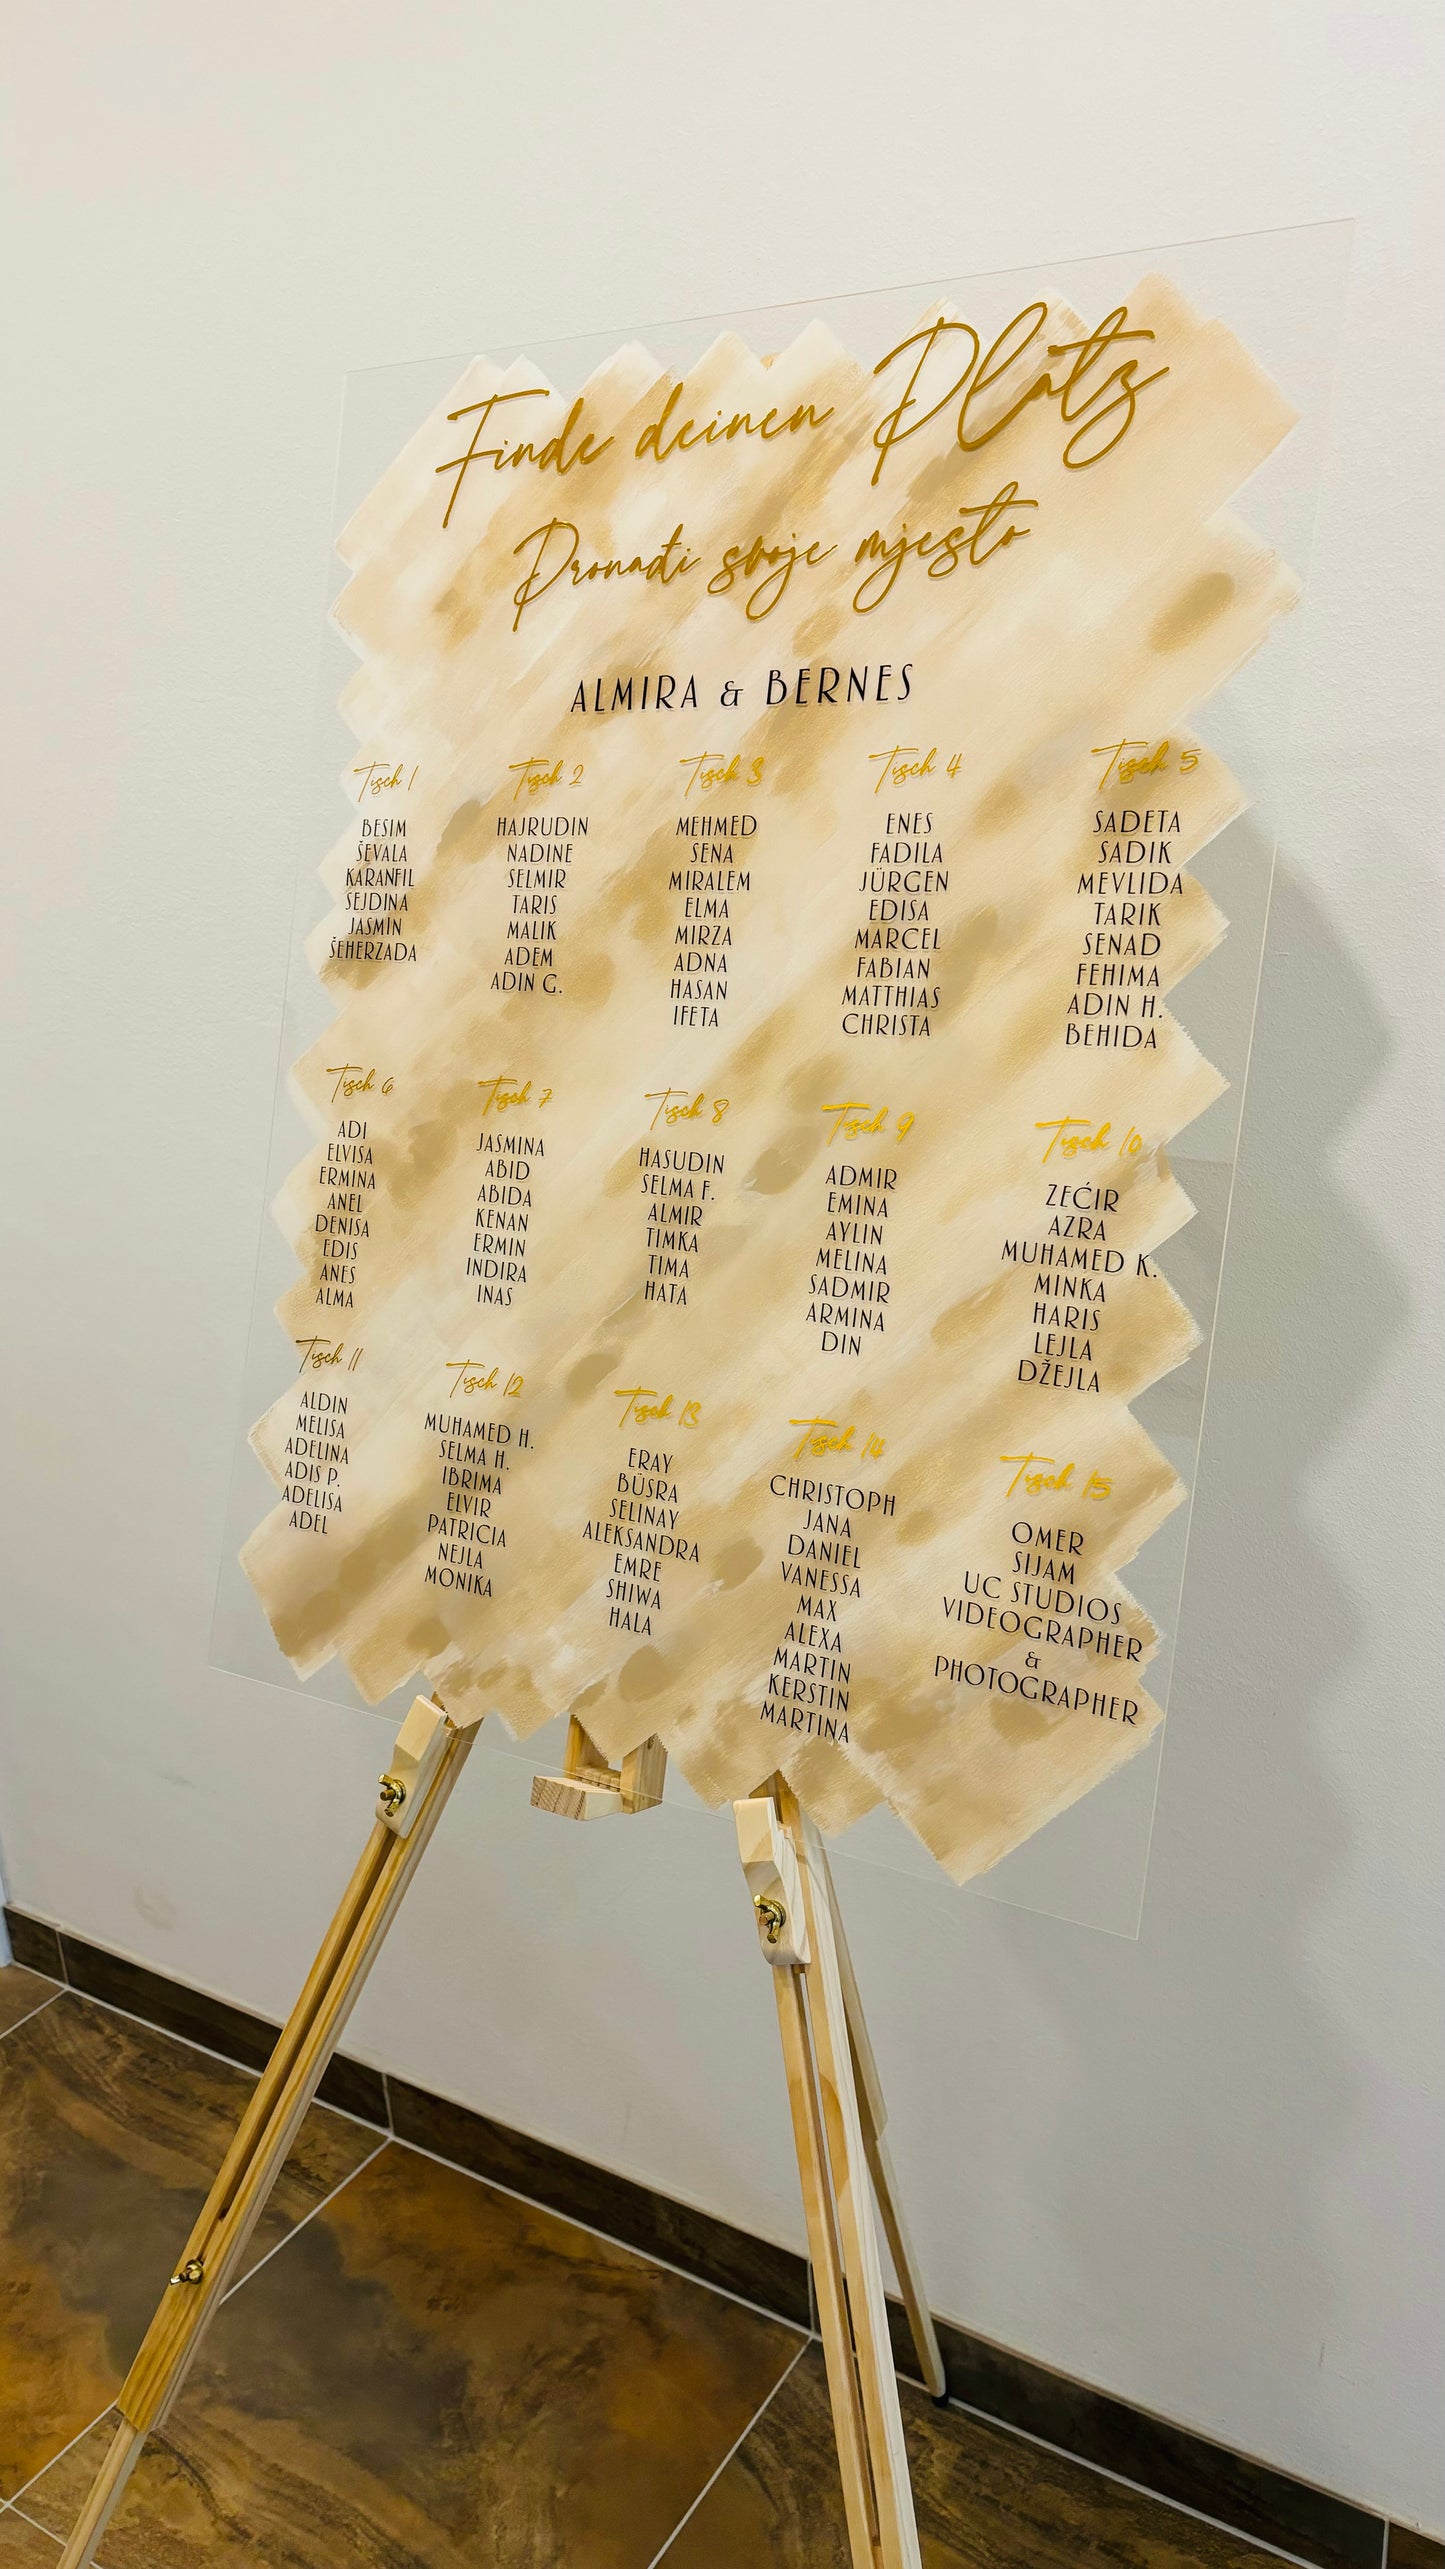 Finde deinen Platz
Pronađi svoje mjesto
ALMIRA & BERNES
Tisch 1
BESIM
ŠEVALA
KARANFIL
SEJDINA
JASMIN
ŠEHERZADA
Tisch 2
HAJRUDIN
NADINE
SELMIR
TARIS
MALIK
ADEM
ADIN G.
Tisch 3
MEHMED
SENA
MIRALEM
ELMA
MIRZA
ADNA
HASAN
IFETA
Tisch 4
ENES
FADILA
JÜRGEN
EDISA
MARCEL
FABIAN
MATTHIAS
CHRISTA
Tisch 5
SADETA
SADIK
MEVLIDA
TARIK
SENAD
FEHIMA
ADIN H.
BEHIDA
Tisch 6
ADI
ELVISA
ERMINA
ANEL
DENISA
EDIS
ANES
ALMA
Tisch 7
JASMINA
ABID
ABIDA
KENAN
ERMIN
INDIRA
INAS
Tisch 8
HASUDIN
SELMA F.
ALMIR
TIMKA
TIMA
HATA
Tisch 9
ADMIR
EMINA
AYLIN
MELINA
SADMIR
ARMINA
DIN
Tisch 10
ZEĆIR
AZRA
MUHAMED K.
MINKA
HARIS
LEJLA
DŽEJLA
Tisch 11
ALDIN
MELISA
ADELINA
ADIS P.
ADELISA
ADEL
Tisch 12
MUHAMED H.
SELMA H.
IBRIMA
ELVIR
PATRICIA
NEJLA
MONIKA
Tisch 13
ERAY
BÜSRA
SELINAY
ALEKSANDRA
EMRE
SHIWA
HALA
Tisch 14
CHRISTOPH
JANA
DANIEL
VANESSA
MAX
ALEXA
MARTIN
KERSTIN
MARTINA
Tisch 15
OMER
SIJAM
UC STUDIOS
VIDEOGRAPHER
&
PHOTOGRAPHER